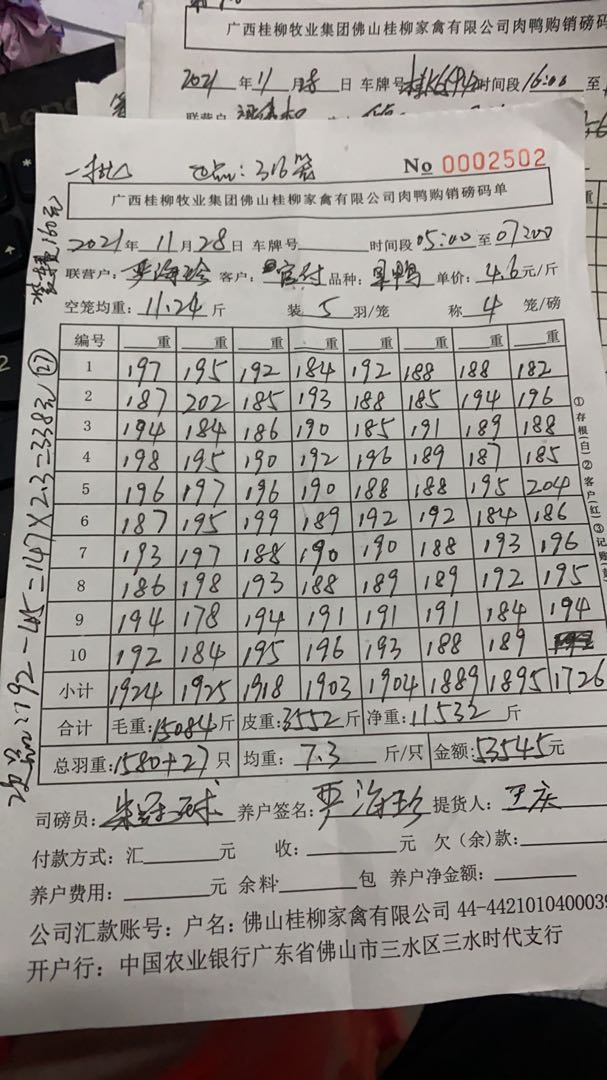 广西桂柳牧业集团佛山桂柳家禽有限公司肉鸭购销磅码
2021年11月28日 车牌号 时间段16:00至
联营户
正品:316笼 No 0002502
广西桂柳牧业集团佛山桂柳家禽有限公司肉鸭购销磅码单
2021年11月28日 车牌号 时间段05:00至07:00
联营户: 严海珍 客户: 官付 品种: 果鸭 单价: 4.6元/斤
空笼均重: 11.24斤 装5羽/笼 称4笼/磅
编号 重 重 重 重 重 重 重 重
1 197 195 192 184 192 188 188 182
2 187 202 185 193 188 185 194 196
3 194 184 186 190 185 191 189 188
4 198 195 190 192 196 189 187 185
5 196 197 196 190 188 188 195 204
6 187 195 199 189 192 192 184 186
7 193 197 188 190 190 188 193 196
8 186 198 193 188 189 189 192 195
9 194 178 194 191 191 191 184 194
10 192 184 195 196 193 188 189
小计 1924 1925 1918 1903 1904 1889 1895 1726
合计 毛重: 15084斤 皮重: 3552斤 净重: 11532斤
总羽重: 1580+27只 均重: 7.3斤/只 金额: 53545元
司磅员: 养户签名: 严海珍 提货人: 王庆
付款方式: 汇 元 收: 元 欠(余)款:
养户费用: 元 余料 包 养户净金额:
公司汇款账号: 户名: 佛山桂柳家禽有限公司 44-4421010400039
开户行: 中国农业银行广东省佛山市三水区三水时代支行
①存根(白)②客户(红)③记账(
装车费160元
次品:192-45=147×2.3=338元(27)